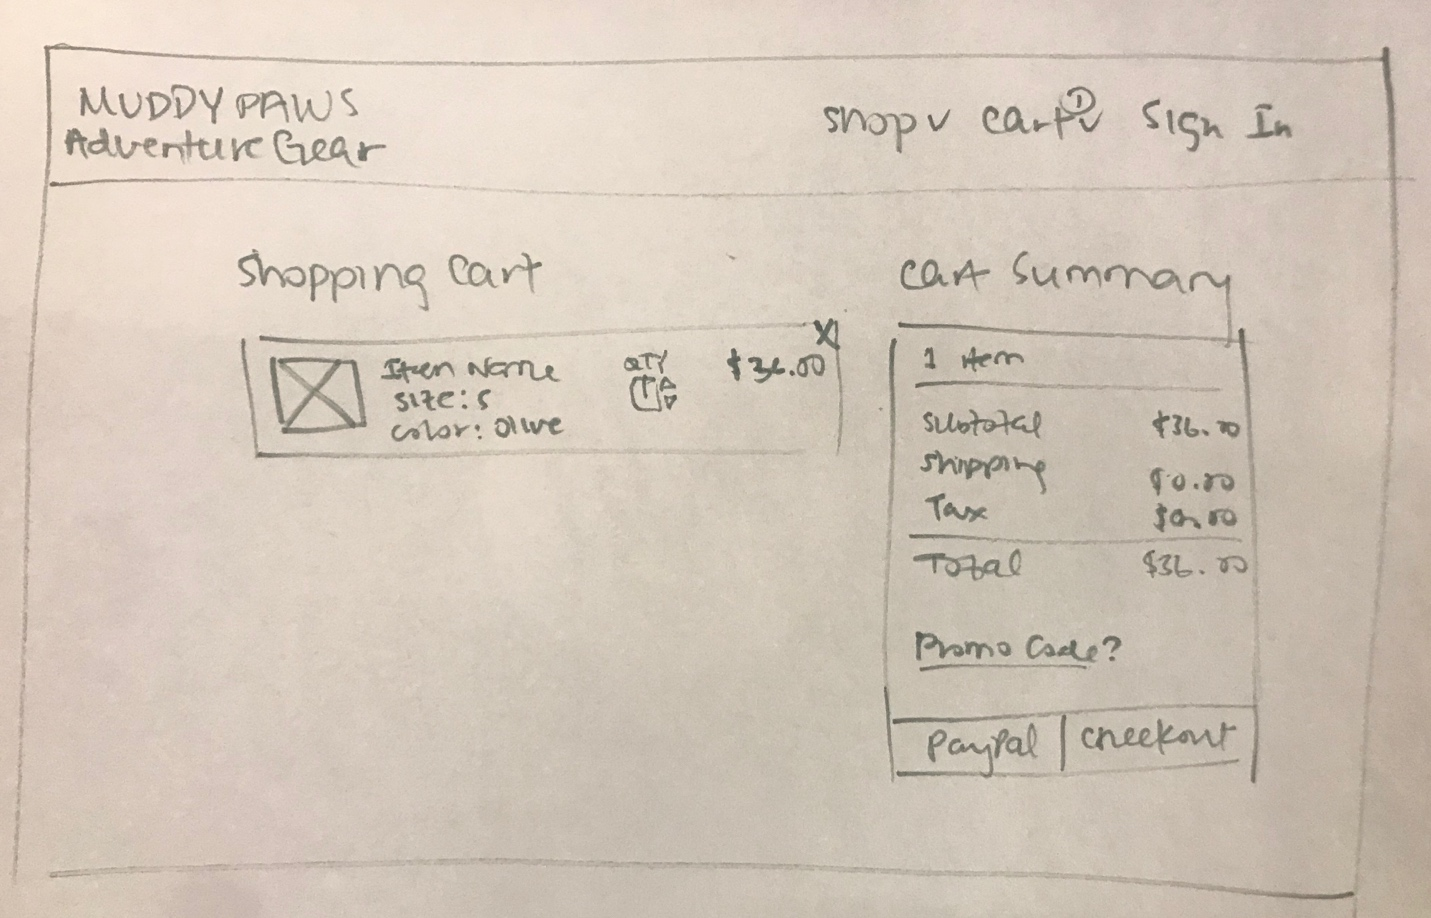 MUDDY PAWS
Adventure Gear
shop v cart 1 v Sign In
Shopping Cart
X
Item Name
size: S
color: olive
QTY
1
$36.00
Cart Summary
1 item
subtotal $36.00
Shipping $0.00
Tax $0.00
Total $36.00
Promo Code?
PayPal | Checkout